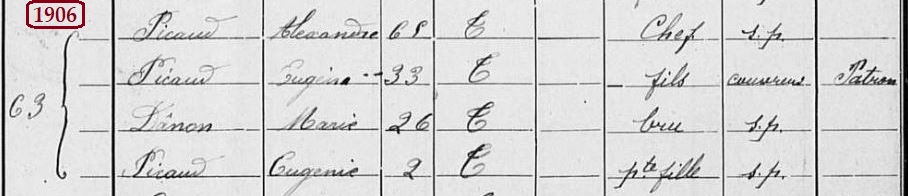 1906
Picaud Alexandre 68 F Chef s.p.
Picaud Eugène -- 33 F fils couvreur Patron
63 Dânon Marie 26 F bru s.p.
Picaud Eugenie 2 F pte fille s.p.